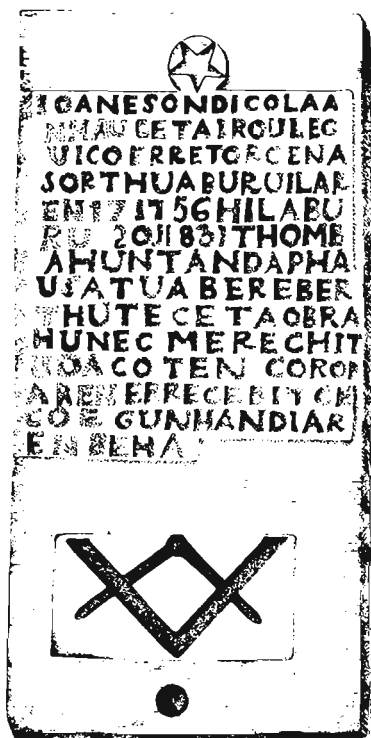 IOANESONDICOLAA
NHAUCETAIROULEG
UICOERRETORCENA
SORTHUABURUILAR
EN17 1756HILABU
RU THOMB
AHUNTANDAPHA
USATUABEREBER
THUTECETAOBRA
HUNECMERECHIT
COTEN COROP
AREN ERRECEBITCE
CO E GUNHANDIAR
EN BEHA